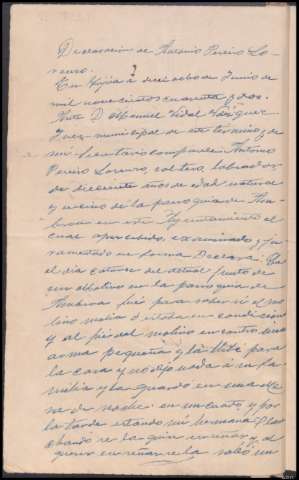 Declaracion de Antonio Pereiro Lo-
renzo.
En        a dieciocho de Junio de
mil novecientos cuarenta y dos.
Ante D. Manuel Vidal Vázquez
Juez municipal de este término y de
mi Secretario comparece Antonio
Pereiro Lorenzo, soltero, labrador,
de diecisiete años de edad natural
y vecino de la parroquia de
       en este Ayuntamiento el
cual apercibido, examinado y ju-
ramentado en forma Declara: Que
el dia catorce del actual junto de
un           en la parroquia de
         fué para saber si el mo-
lino molia ó estaba en condiciones
y al pié del molino encontró una
arma pequeña y la llevó para
la casa y no dijo nada á su fa-
milia y la guardó en una
       de noche en un cuarto y por
la tarde estando mi hermana
       se la quiso enseñar y al
querer enseñársela salió un